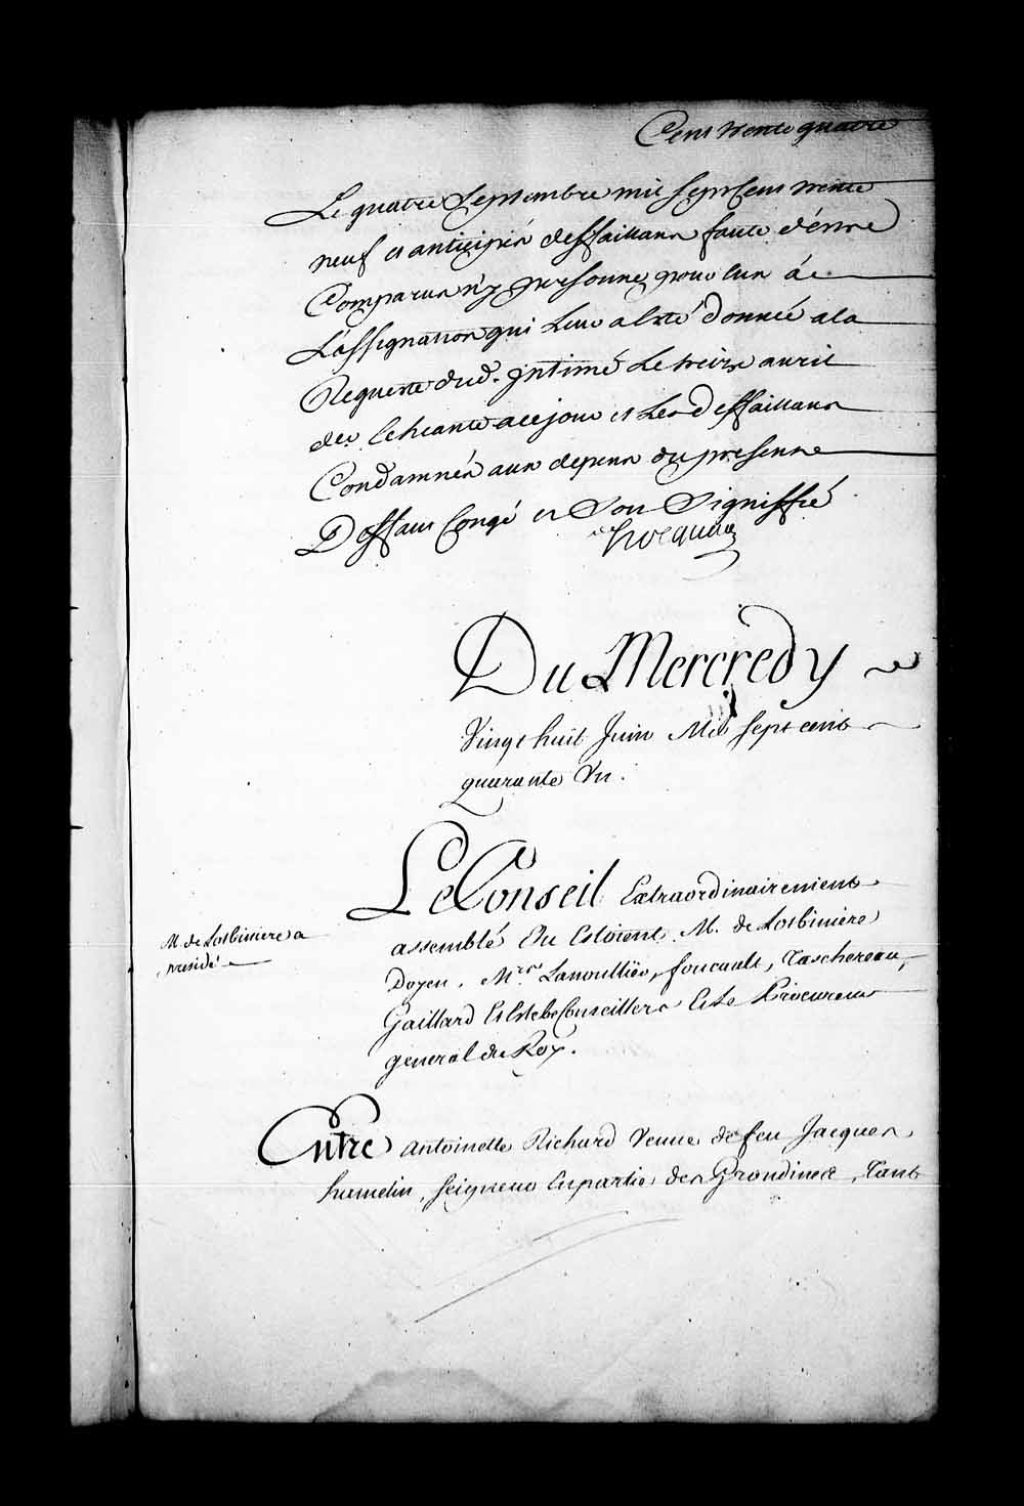 Cent trente quatre
Le quatre Septembre mil sept Cent trente
neuf et anticipés deffaillans faute d'être
Comparus n'y personne pour Eux à
L'assignation qui Leur a Esté donnée a la
Requeste dud. Intimé Le treize avril
der. Echeante a ce jour et Les Deffaillans
Condamnés aux depens du present
Deffaut Congé et Soit Signiffié
hocquart
Du Mercredy
Vingt huit Juin Mil sept cent
quarante Un.
Le Conseil Extraordinairement
assemblé Ou Estoient M. de Lotbiniere
M. de Lotbiniere a
presidé
Doyen, Mrs. Lanoullier, foucault, Taschereau,
Gaillard Et Estebe Conseillers Et Le Procureur
general du Roy.
Entre antoinette Richard Veuve de feu Jacques
hamelin, Seigneur En partie des Grondines, Tant